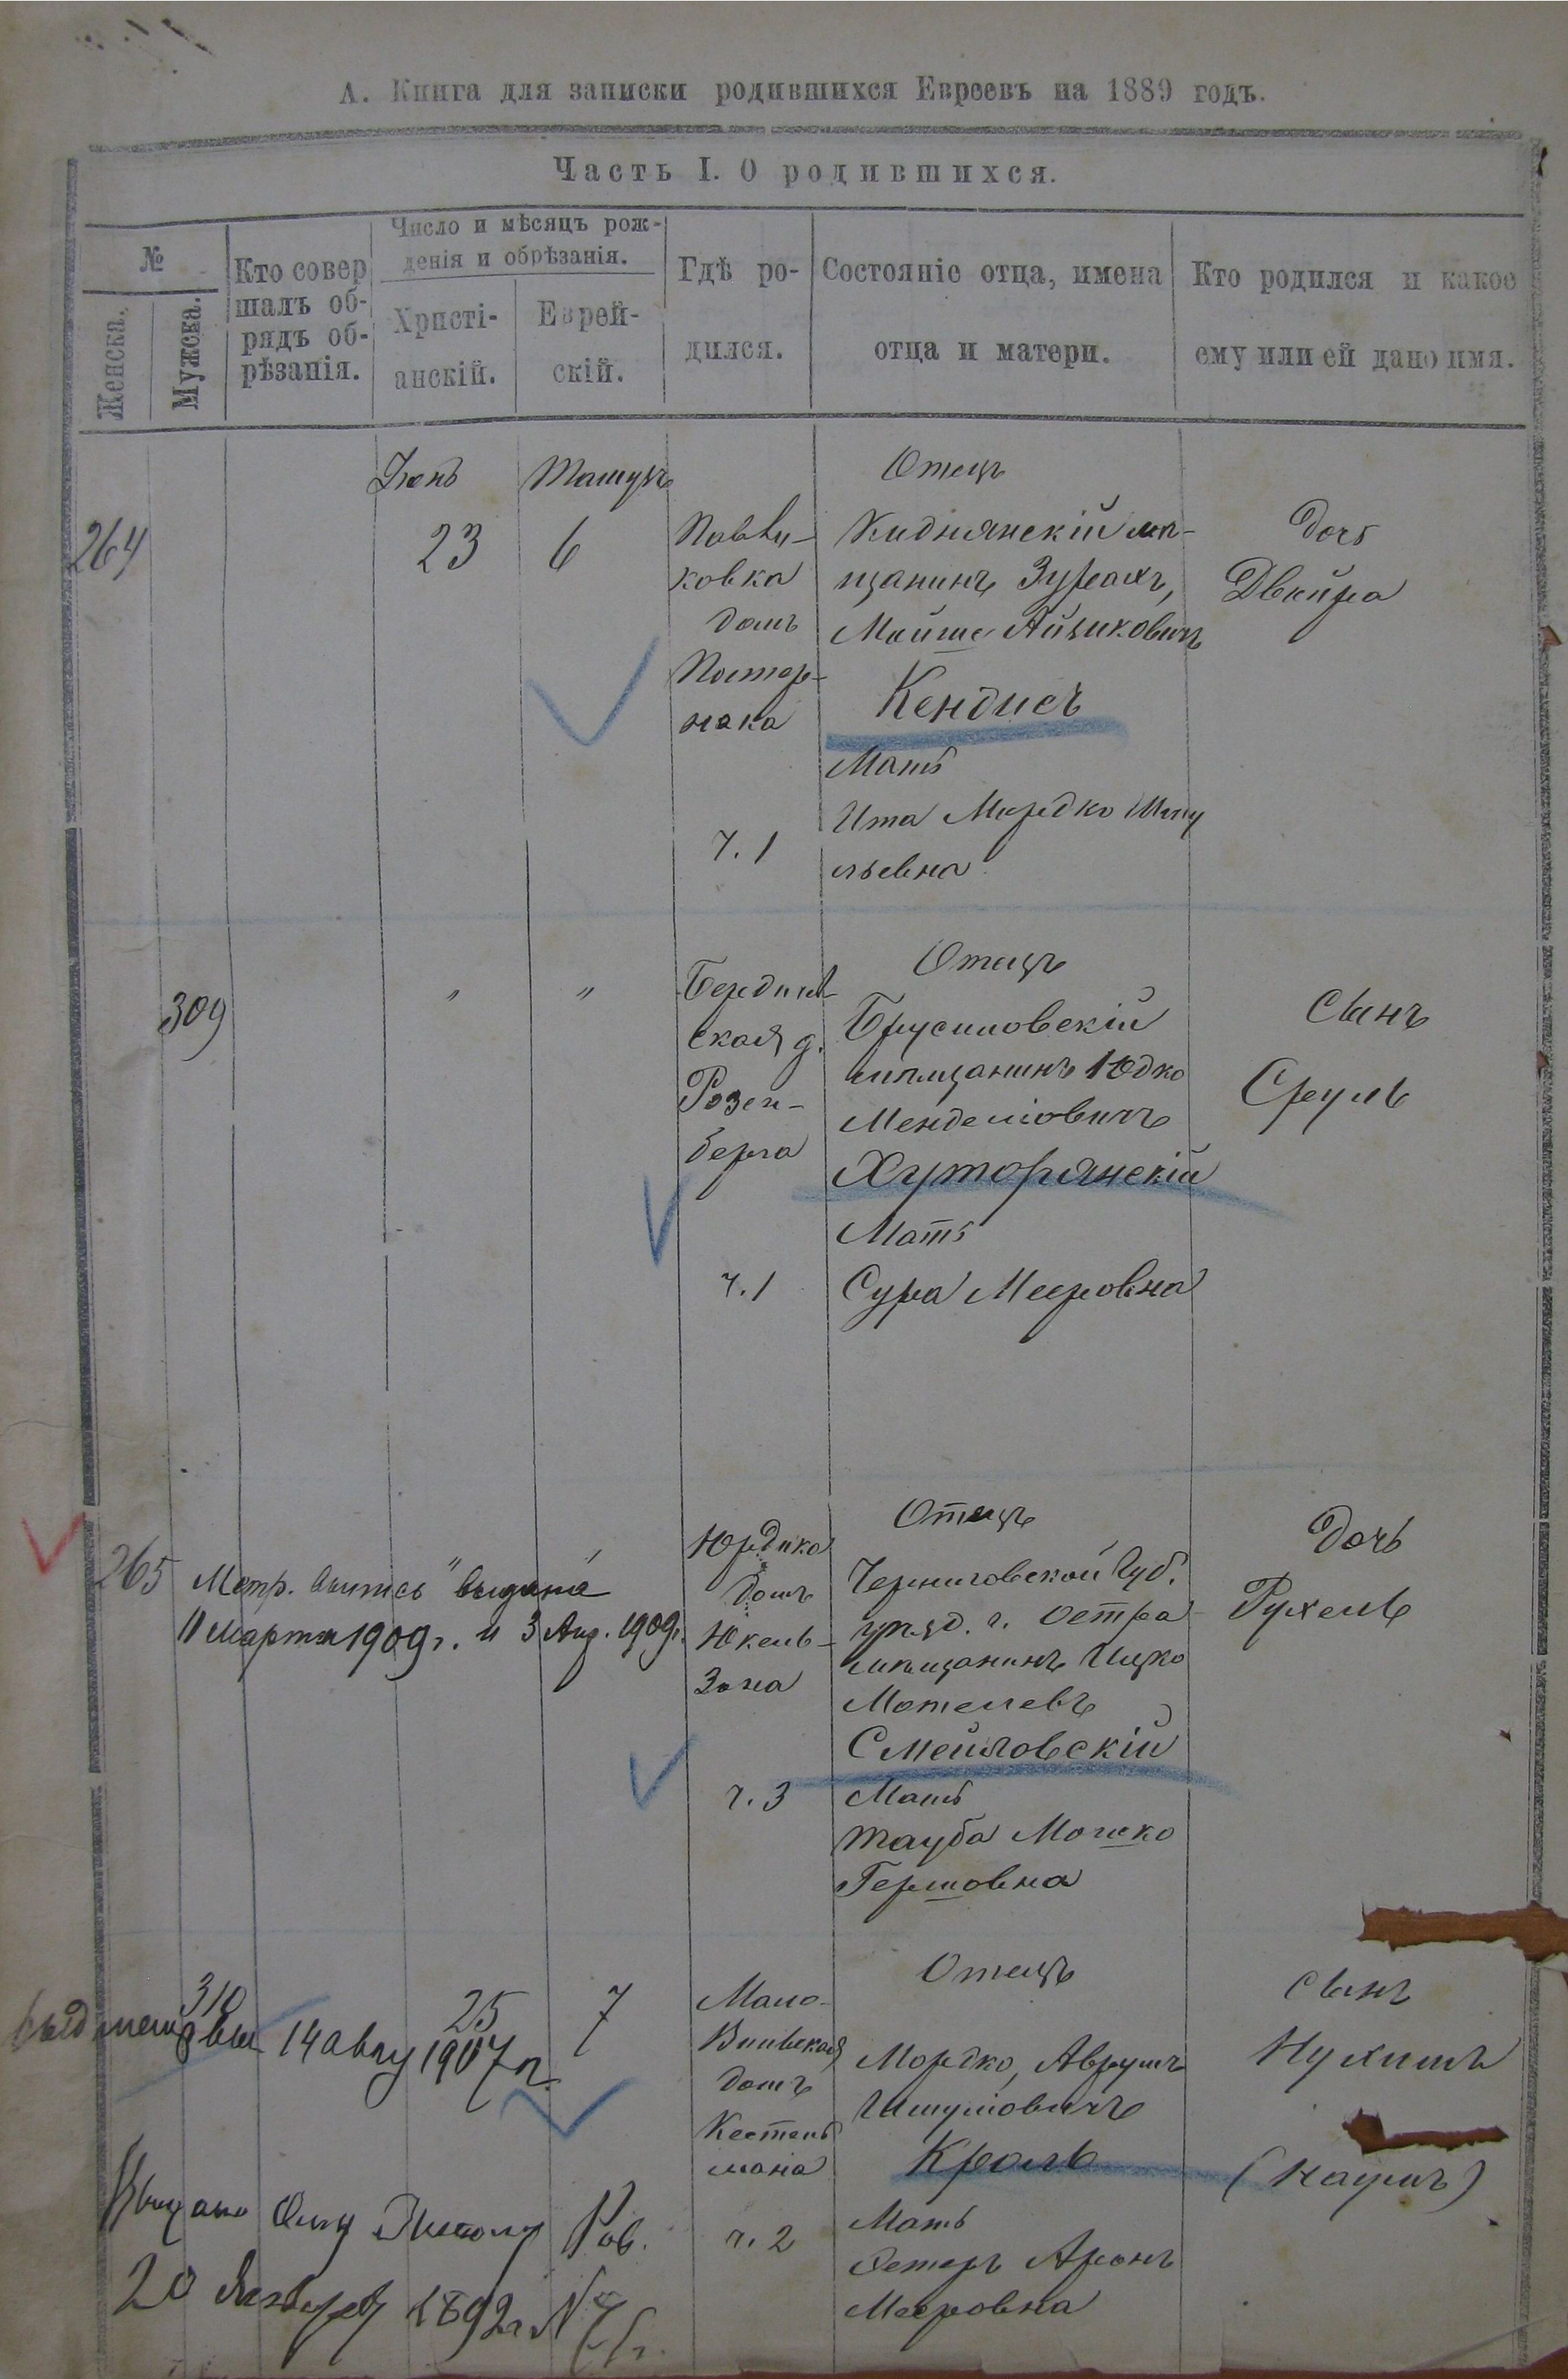 А. Книга для записки родившихся Евреевъ на 1889 годъ.
Часть I. О родившихся.
№
Женска.
Мужска.
Кто совер
шалъ об-
рядъ об-
рѣзанія.
Число и мѣсяцъ рож-
денія и обрѣзанія.
Христі-
анскій.
Еврей-
скій.
Гдѣ ро-
дился.
Состояніе отца, имена
отца и матери.
Кто родился и какое
ему или ей дано имя.
Іюнь
Тамузъ
264
23
6
ковка
домъ
Отецъ
мѣ-
щанинъ
Айзиковичъ
Кендисъ
Мать
Ита Мордко Шму
льевна
ч. 1
Дочь
Двейра
309
"
"
Бердичев
ская д.
Розен-
берга
ч. 1
Отецъ
Брусиловскій
мѣщанинъ Юдко
Менделіовичъ
Хуторянскій
Мать
Сура Мееровна
Сынъ
Сруль
265
Метр. выпись выдана
11 Марта 1909 г. и 3 Анд. 1909г.
"
"
Юрдика
домъ
Юкель-
зона
ч. 3
Отецъ
Черниговской Губ.
уѣзд. г. Остра
мѣщанинъ Ицко
Мотелевъ
Смейловскій
Мать
Тауба Мошко
Гершовна
Дочь
Рухель
310
25
7
14 авгу 1907 г.
Мало-
Вильская
домъ
Кестель
мана
ч. 2
Отецъ
Мордко, Аврумъ
Шмуліовичъ
Кроль
Мать
Эстеръ Аронъ
Мееровна
Сынъ
Нухимъ
(Наумъ)
Выдано
20 Января 1892 г. №